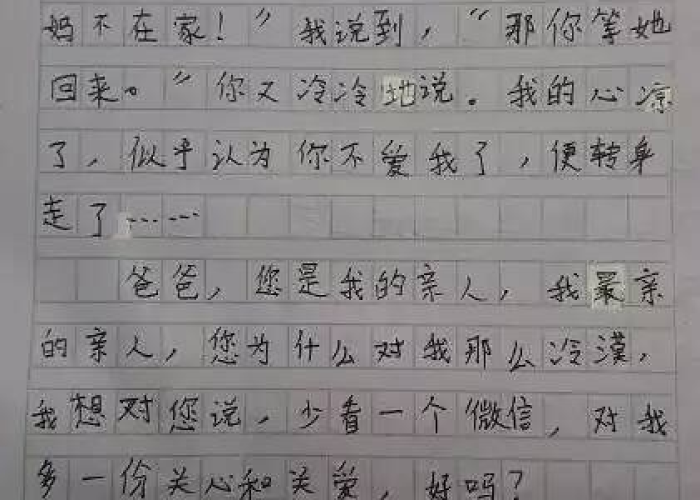 妈不在家！”我说到，“那你等她
回来。”你又冷冷地说。我的心凉
了，似乎认为你不爱我了，便转身
走了……
爸爸，您是我的亲人，我最亲
的亲人，您为什么对我那么冷漠，
我想对您说，少看一个微信，对我
多一份关心和关爱，好吗？